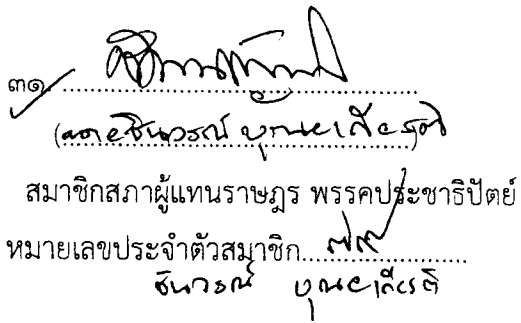 ๓๑.
(นายชินวรณ์ บุณยเกียรติ)
สมาชิกสภาผู้แทนราษฎร พรรคประชาธิปัตย์
หมายเลขประจำตัวสมาชิก ๗๙
ชินวรณ์ บุณยเกียรติ